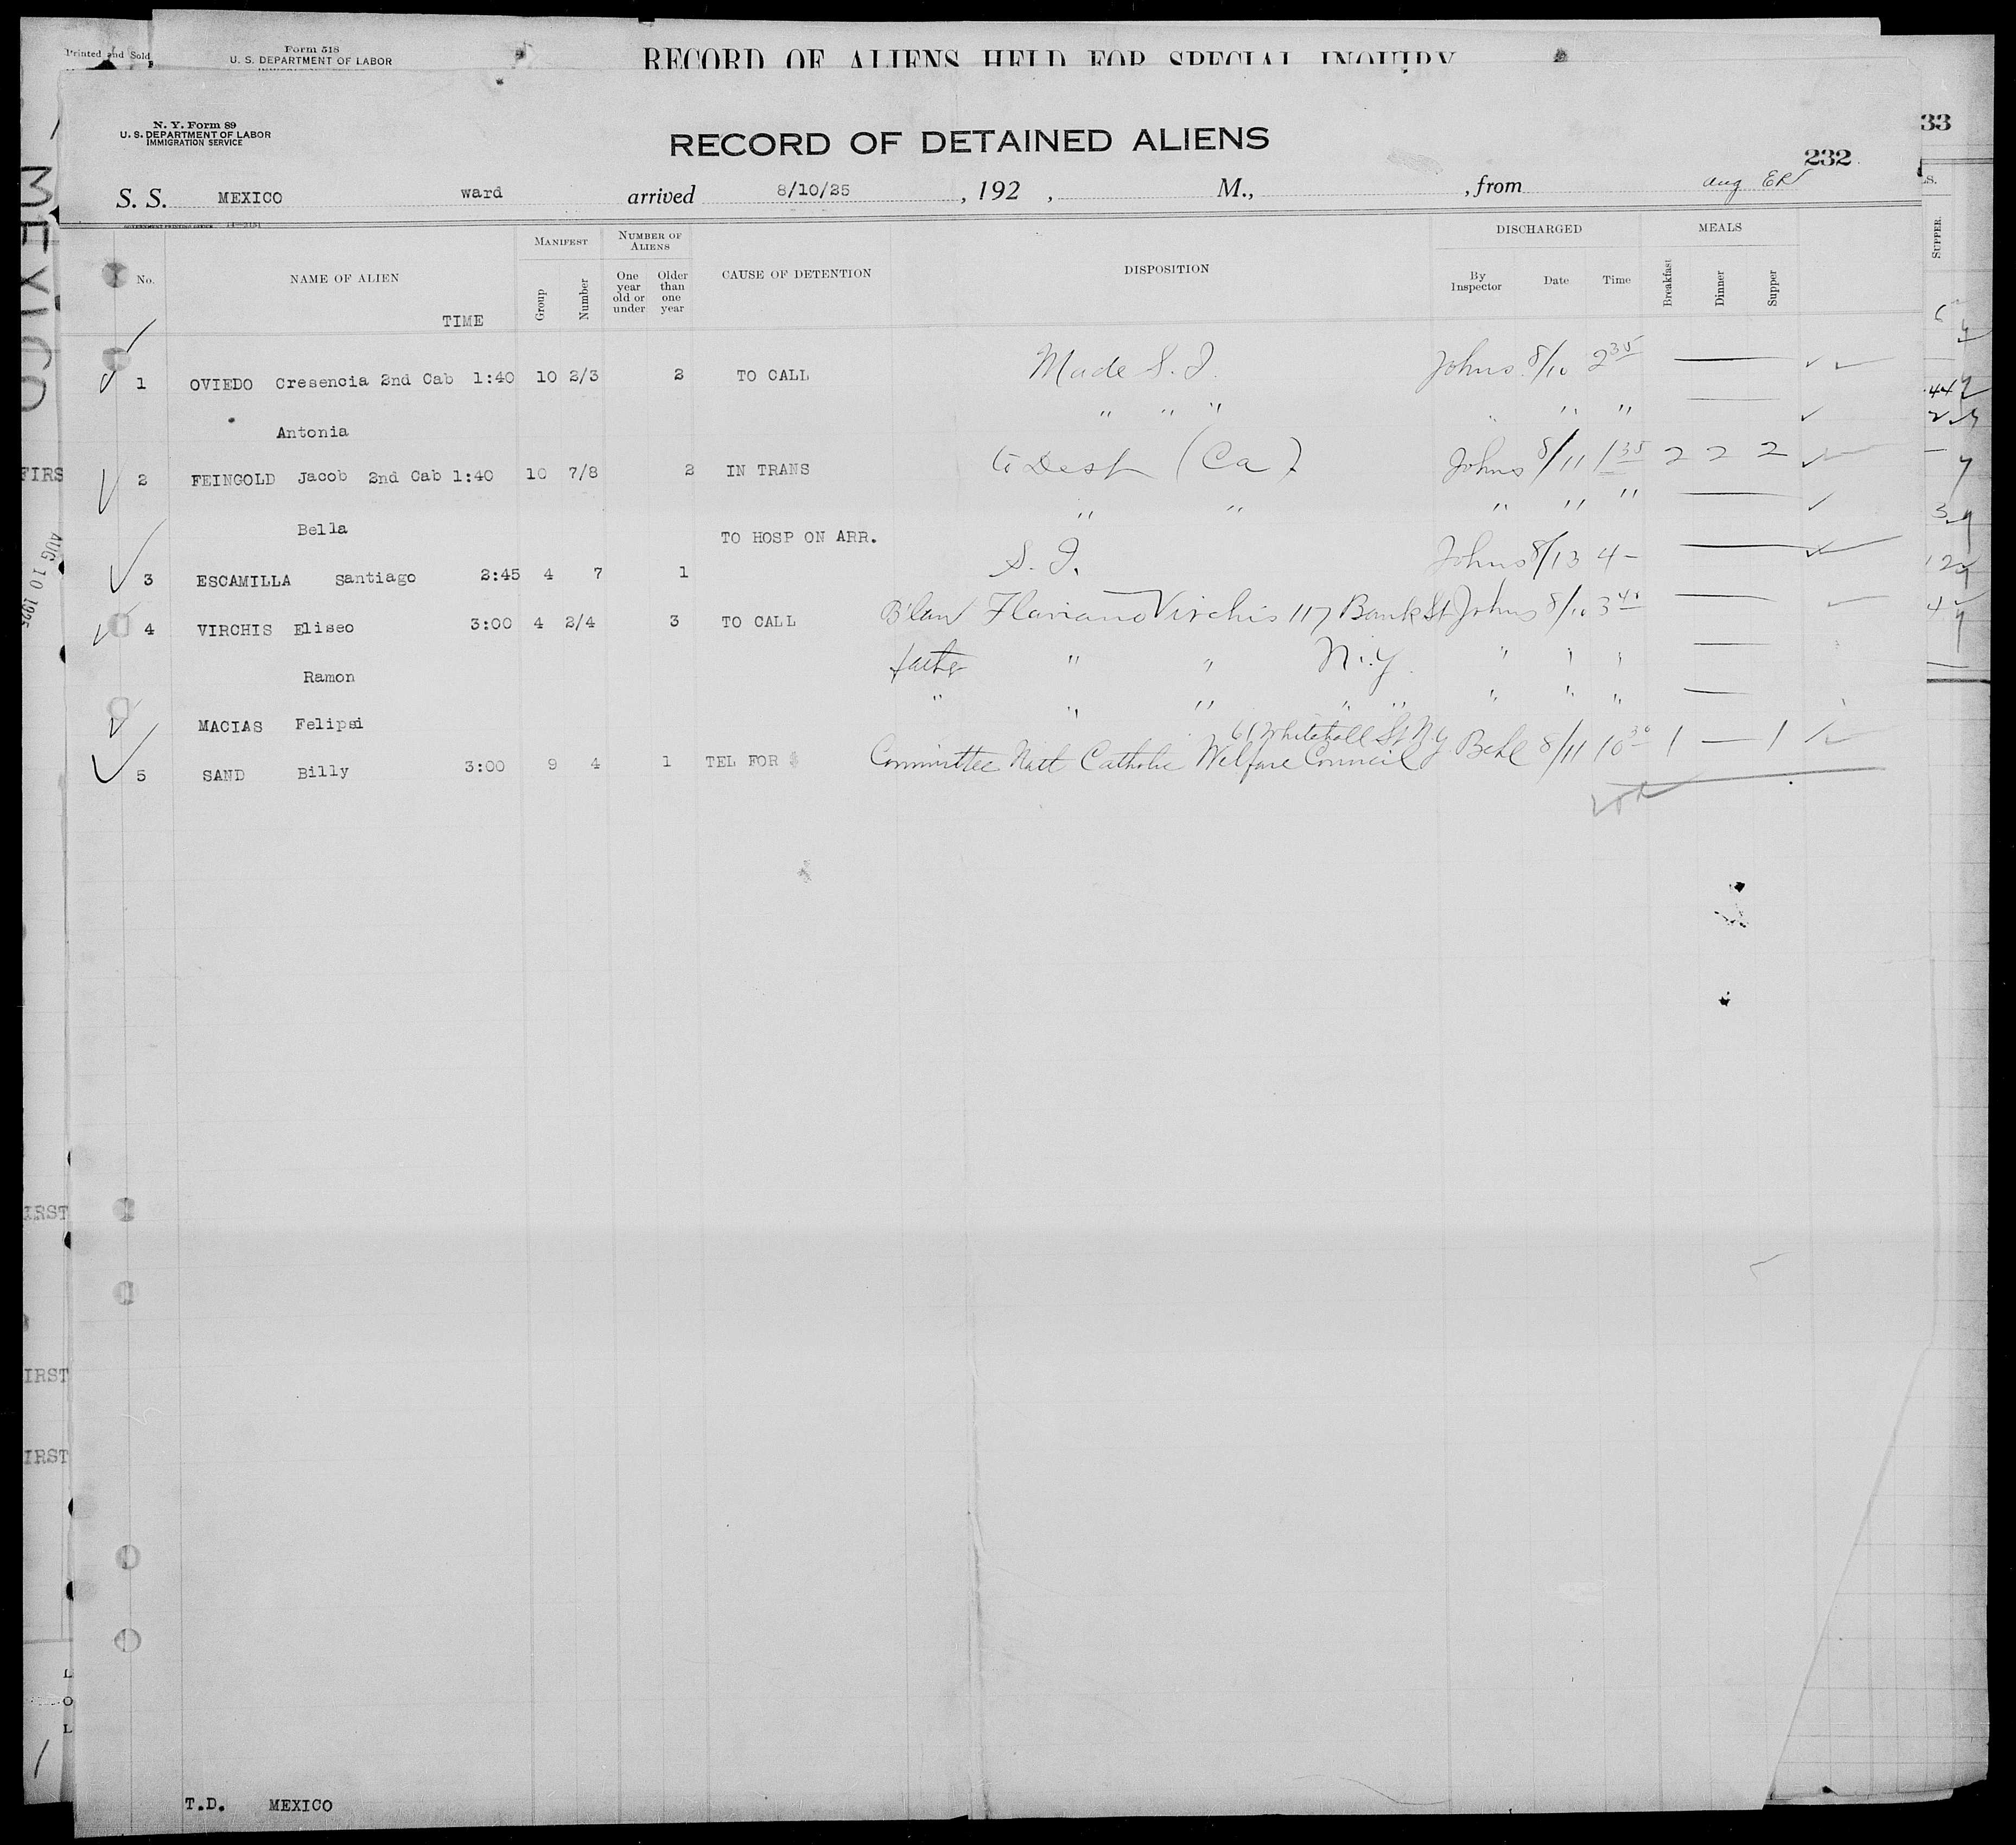 Printed and Sold
Form 518
U. S. DEPARTMENT OF LABOR
RECORD OF ALIENS HELD FOR SPECIAL INQUIRY
33
N. Y. Form 89
U. S. DEPARTMENT OF LABOR
IMMIGRATION SERVICE
RECORD OF DETAINED ALIENS
232
S. S. MEXICO ward arrived 8/10/25, 192 , M., , from Aug
GOVERNMENT PRINTING OFFICE
No. NAME OF ALIEN TIME MANIFEST Group Number NUMBER OF ALIENS One year old or under Older than one year CAUSE OF DETENTION DISPOSITION DISCHARGED By Inspector Date Time MEALS Breakfast Dinner Supper SUPPER.
1 OVIEDO Cresencia 2nd Cab 1:40 10 2/3 2 TO CALL Made S. I. Johns 8/10 2 35
Antonia " " " " " "
2 FEINGOLD Jacob 2nd Cab 1:40 10 7/8 2 IN TRANS to Dest (Ca) Johns 8/11 1 35 2 2 2
Bella " " " " "
TO HOSP ON ARR.
3 ESCAMILLA Santiago 2:45 4 7 1 S. I. Johns 8/13 4 –
4 VIRCHIS Eliseo 3:00 4 2/4 3 TO CALL B'law Flaviano Virchis 117 Bank St Johns 8/10 3 40
Ramon father " " N.Y. " " "
MACIAS Felipsi " " " " " " " "
61 Whitehall St N Y
5 SAND Billy 3:00 9 4 1 TEL FOR $ Committee Natl Catholic Welfare Council 8/11 10 30 1 — 1
MEXICO
FIRS
AUG 10 1925
IRST
IRST
IRST
L
O
L
T.D. MEXICO